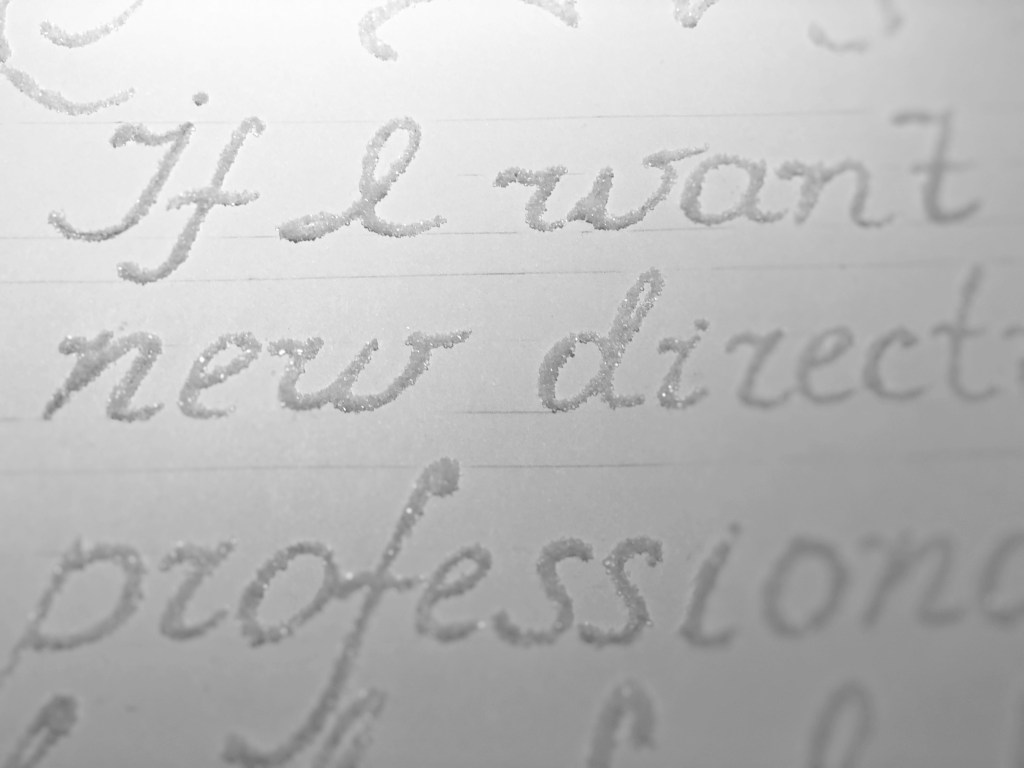 If I want
new direct
professiona